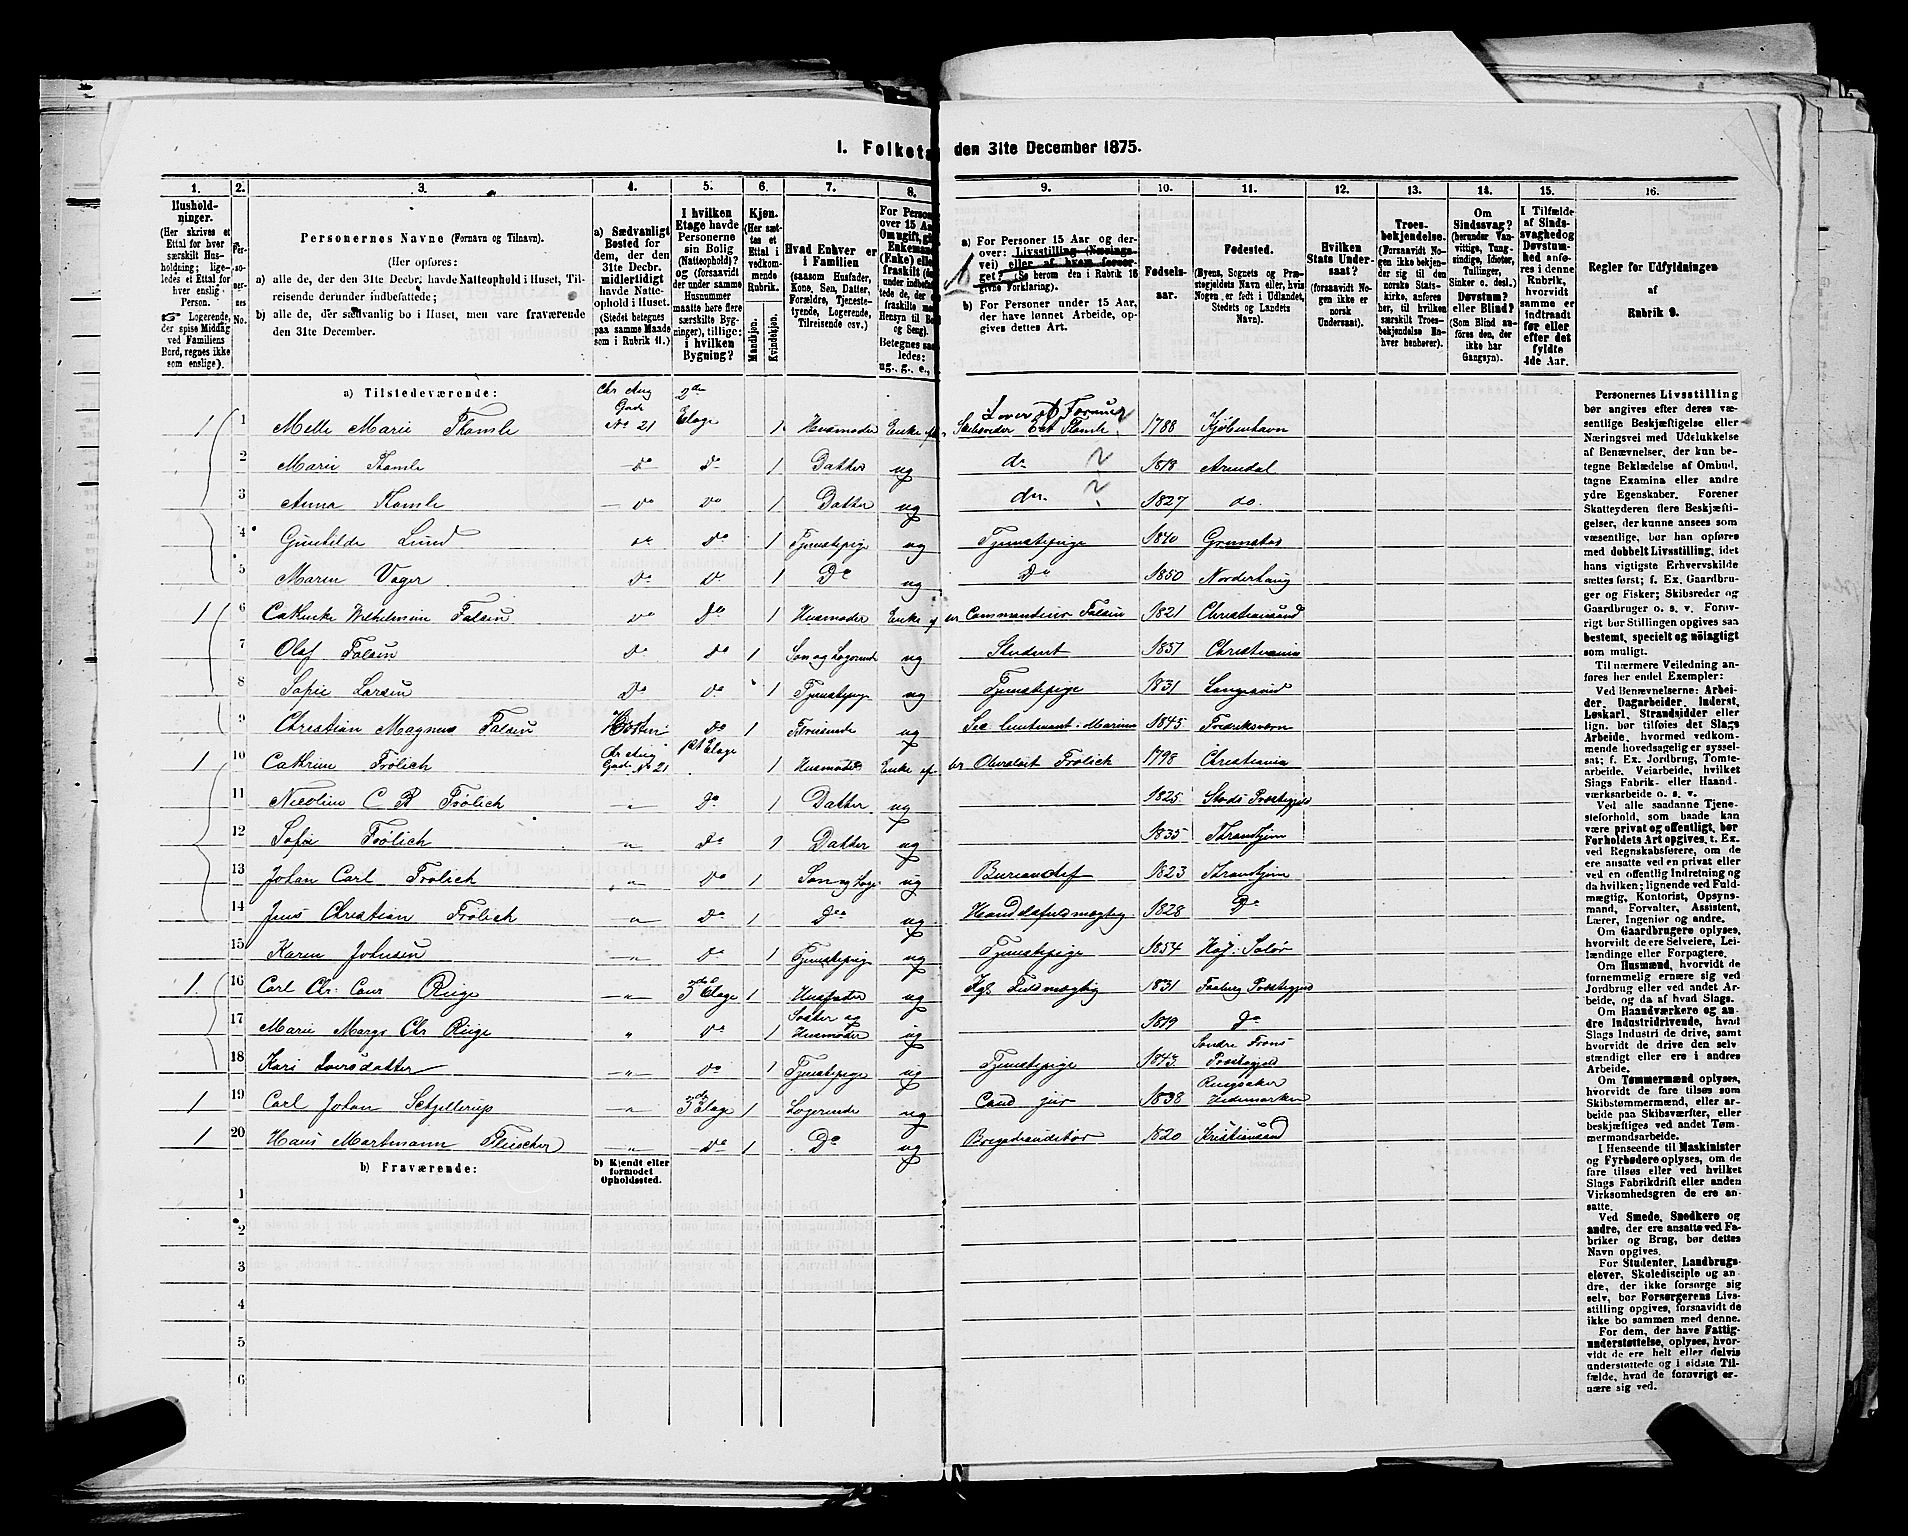 I. Folketa
den 31te December 1875.
1.
2.
3.
4.
5.
6.
7.
8.
9.
10.
11.
12.
13.
14.
15.
16.
Hushold-
ninger.
(Her skrives et
Ettal for hver
særskilt Hus-
holdning; lige-
ledes et Ettal for
hver enslig
Person.
☞ Logerende,
der spise Middag
ved Familiens
Bord, regnes ikke
som enslige).
Per-
so-
ner-
nes
No.
Personernes Navne (Fornavn og Tilnavn).
(Her opføres:
a) alle de, der den 31te Decbr. havde Natteophold i Huset, Til-
reisende derunder indbefattede;
b) alle de, der sædvanlig bo i Huset, men vare fraværende
den 31te December.
a) Sædvanligt
Bosted for
dem, der den
31te Decbr.
midlertidigt
havde Natte-
ophold i Huset.
(Stedet betegnes
paa samme Maade
som i Rubrik 11.)
I hvilken
Etage havde
Personerne
sin Bolig
(Natteophold)?
og (forsaavidt
der under samme
Husnummer
maatte here flere
særskilte Byg-
ninger), tillige:
i hvilken
Bygning?
Kjøn.
(Her sæt-
tes et
Ettal i
vedkom-
mende
Rubrik.
Mandkjøn.
Kvindekjøn.
Hvad Enhver er
i Familien
(saasom Husfader,
Kone, Søn, Datter,
Forældre, Tjeneste-
tyende, Logerende,
Tilreisende osv.)
For Person
over 15 Aa
Om ugift, g
Enkemand
(Enke) elle
fraskilt (de
under indbe
tede de, der
fraskilte m
Hensyn til B
og Seng).
Betegnes saa
ledes:
ug., g., e.,
a) For Personer 15 Aar og der-
over: Livsstilling (Nærings-
vei) eller af hvem forsør-
get? (Se herom den i Rubrik 16
givne Forklaring).
b) For Personer under 15 Aar,
der have lønnet Arbeide, op-
gives dettes Art.
Fødsels-
aar.
Fødested.
(Byens, Sognets og Præ-
stegjeldets Navn eller, hvis
Nogen er født i Udlandet,
Stedets og Landets
Navn).
Hvilken
Stats Under-
saat?
(forsaavidt No-
gen ikke er
norsk
Undersaat).
Troes-
bekjendelse.
(Forsaavidt No-
gen ikke bekjen-
der sig til den
norske Stats-
kirke, anføres
her, til hvilken
særskilt Troes-
bekjendelse En-
hver henhører).
Om
Sindssvag?
(herunder Van-
vittige, Tung-
sindige, Idioter,
Tullinger,
Sinker o. desl.)
Døvstum?
eller Blind?
(Som Blind an-
føres den, der
ikke har
Gangsyn).
I Tilfælde
af Sinds-
svaghed og
Døvstum-
hed anføres
i denne
Rubrik,
hvorvidt
samme er
indtraadt
før eller
efter det
fyldte
4de Aar.
Regler for Udfyldningen
af
Rubrik 9.
a) Tilstedeværende:
Chr Aug
Gade
No 21
2den
Etage
1 1 Melle Marie Thomle 1 Husmoder Enke ef 1788 Kjøbenhavn
2 Marie Thomle Do Do 1 Datter ug do ? 1818 Arendal
3 Anna Thomle Do Do 1 Datter ug do ? 1827 do.
4 Gunhilde Lund Do Do 1 Tjenestepige ug Tjenestepige 1840 Grimstad
5 Maren Vager Do Do 1 Do ug Do 1850 Norderhaug
1 6 Cathrike Wilhelmine Falsen Do Do 1 Husmoder Enke ef er Commandeur Falsen 1821 Christiansand
7 Olaf Falsen Do Do 1 Søn og Logerende ug Student 1857 Christiania
8 Sofie Larsen Do Do 1 Tjenestepige ug Tjenestepige 1831
9 Christian Magnus Falsen Horten Do 1 Tilreisende ug Sec lieutenant i Marinen 1845 Fredriksværn
1 10 Cathrine Frølich Chr Aug Gade No 21 1st Etage 1 Husmoder Enke ef er Oberstlt Frølich 1798 Christiania
11 Nicoline C B Frølich " Do 1 Datter ug 1825 Stods Præstegjeld
12 Sofie Frølich " Do 1 Datter ug 1835 Throndhjem
13 Johan Carl Frølich " Do 1 Søn og Loge. ug Bureauchef 1823 Throndhjem
14 Jens Christian Frølich " Do 1 Do ug Handelsfuldmægtig 1828 Do
15 Karen Johnsen " Do 1 Tjenestepige ug Tjenestepige 1854 Hof. Solør
1 16 Carl Chr: Caur Riige " 3die Etage 1 Husfader ug Kgl. Fuldmægtig 1831 Faaberg Præstegjeld
17 Marie Margr Chr Riige " Do 1 Søster og Husmoder ug 1819 Do
18 Kari Iversdatter " Do 1 Tjenestepige ug Tjenestepige 1843 Søndre Frons Præstegjeld
1 19 Carl Johan Schjelderup " 3die Etage 1 Logerende ug Cand jur 1838 Ringsaker Hedemarken
1 20 Hans Mortmann Fleischer " Do 1 Do ug Brigadeauditør 1820 Kristiansand
b) Fraværende:
b) Kjendt eller
formodet
Opholdssted.
1
2
3
4
5
6
Personernes Livsstilling
bør angives efter deres væ-
sentlige Beskjæftigelse eller
Næringsvei med Udelukkelse
af Benævnelser, der kun be-
tegne Beklædelse af Ombud,
tagne Examina eller andre
ydre Egenskaber. Forener
Skatteyderen flere Beskjæfti-
gelser, der kunne ansees som
væsentlige, bør han opføres
med dobbelt Livsstilling, idet
hans vigtigste Erhvervskilde
sættes først; f. Ex. Gaardbru-
ger og Fisker; Skibsreder og
Gaardbruger o. s. v. Forøv-
rigt bør Stillingen opgives saa
bestemt, specielt og nøiagtigt
som muligt.
Til nærmere Veiledning an-
føres her endel Exempler:
Ved Benævnelserne: Arbei-
der, Dagarbeider, Inderst,
Løskarl, Strandsidder eller
lign. bør tilføies det Slags
Arbeide, hvormed vedkom-
mende hovedsagelig er syssel-
sat; f. Ex. Jordbrug, Tomte-
arbeide, Veiarbeide, hvilket
Slags Fabrik- eller Haand-
værksarbeide o. s. v.
Ved alle saadanne Tjene-
steforhold, som baade kan
være privat og offentligt, bør
Forholdets Art opgives, t. Ex.
ved Regnskabsførere, om de
ere ansatte ved en privat eller
ved en offentlig Indretning og
da hvilken; lignende ved Fuld-
mægtig, Kontorist, Opsyns-
mand, Forvalter, Assistent,
Lærer, Ingeniør og andre.
Om Gaardbrugere oplyses,
hvorvidt de ere Selveiere, Lei-
lændinge eller Forpagtere.
Om Husmænd, hvorvidt de
fornemmelig ernære sig ved
Jordbrug eller ved andet Ar-
beide, og da af hvad Slags.
Om Haandværkere og an-
dre Industridrivende, hvad
Slags Industri de drive, samt
hvorvidt de drive den selv-
stændigt eller ere i andres
Arbeide.
Om Tømmermænd oplyses,
hvorvidt de fare tilsøs som
Skibstømmermænd, eller ar-
beide paa Skibsværfter, eller
beskjæftiges ved andet Tøm-
mermandsarbeide.
I Henseende til Maskinister
og Fyrbødere oplyses, om de
fare tilsøs eller ved hvilket
Slags Fabrikdrift eller anden
Virksomhedsgren de ere an-
satte.
Ved Smede, Snedkere og
andre, der ere ansatte ved Fa-
briker og Brug, bør dettes
Navn opgives.
For Studenter, Landbrugs-
elever, Skoledisciple og an-
dre, der ikke forsørge sig
selv, bør Forsørgerens Livs-
stilling opgives, forsaavidt de
ikke bo sammen med denne.
For dem, der have Fattig-
understøttelse, oplyses, hvor-
vidt de ere helt eller delvis
understøttede og i sidste Til-
fælde, hvad de forøvrigt er-
nære sig ved.